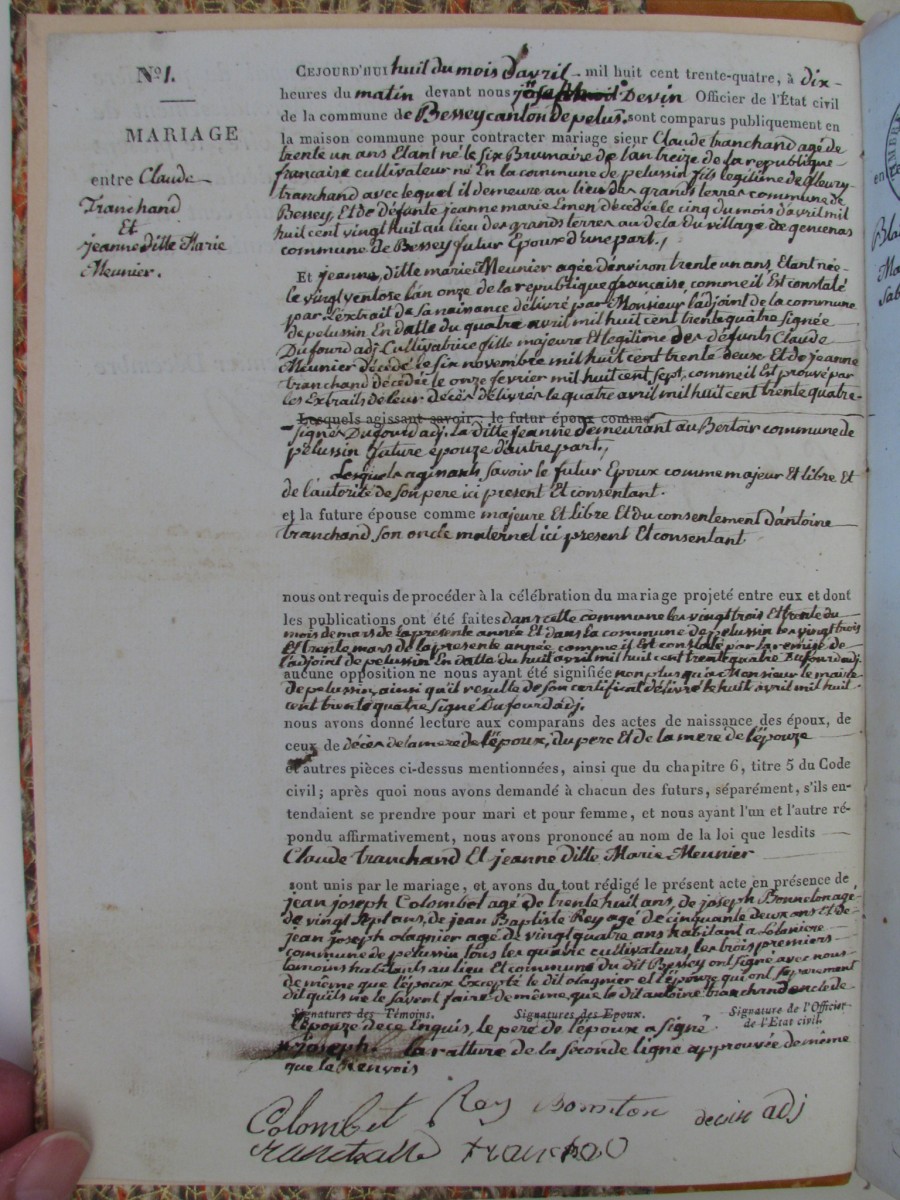 N.º 1.
MARIAGE
entre Claude
Tranchand
Et
jeanne ditte Marie
Meunier.
CEJOURD'HUI huit du mois d'avril mil huit cent trente-quatre, à dix
heures du matin devant nous Devin Officier de l'État civil
de la commune de Bessey canton de pelus. sont comparus publiquement en
la maison commune pour contracter mariage sieur Claude tranchand agé de
trente un ans Etant né le six Brumaire de l'an treize de la republique
française cultivateur né En la commune de pelussin fils legitime de fleury
tranchand avec lequel il demeure au lieu des grands terres commune de
Bessey, Et de défunte jeanne marie Emen décédée le cinq du mois d'avril mil
huit cent vingt huit au lieu des grands terres au dela du village de gencenas
commune de Bessey futur Epoux d'une part.,
Et jeanne, ditte marie Meunier agée d'environ trente un ans, Etant née
le vingt ventose l'an onze de la republique française, comme il Est constaté
par l'extrait de sa naissance délivré par Monsieur l'adjoint de la commune
de pelussin En datte du quatre avril mil huit cent trente quatre signée
Dufour d adj. Cultivatrice fille majeure Et legitime des défunts Claude
Meunier décédé le six novembre mil huit cent trente deuse Et de jeanne
tranchand décédée le onze fevrier mil huit cent sept, comme il Est prouvé par
les Extraits de leur décès délivrés le quatre avril mil huit cent trente quatre
Lesquels agissant savoir, le futur époux comme
signés Dufourd adj. la ditte jeanne demeurant au Bertoir commune de
pelussin future épouze d'autre part.,
Lesquels agissants savoir le futur Epoux comme majeur Et libre Et
de l'autorité de son pere ici present Et consentant.
et la future épouse comme majeure Et libre Et du consentement d'antoine
tranchand son oncle maternel ici present Et consentant
nous ont requis de procéder à la célébration du mariage projeté entre eux et dont
les publications ont été faites dans cette commune les vingt trois Et trente du
mois de mars de la presente année Et dans la commune de pelussin les vingt trois
Et trente mars de la presente année comme il Est constaté par la remise de
l'adjoint de pelussin En datte du huit avril mil huit cent trente quatre Dufourd adj.
aucune opposition ne nous ayant été signifiée non plus qu'a Monsieur le maire
de pelussin, ainsi qu'il resulte de son certificat délivré le huit avril mil huit
cent trente quatre signé Dufourd adj.
nous avons donné lecture aux comparans des actes de naissance des époux, de
ceux de décès de la mere de l'époux, du pere Et de la mere de l'épouze
et autres pièces ci-dessus mentionnées, ainsi que du chapitre 6, titre 5 du Code
civil; après quoi nous avons demandé à chacun des futurs, séparément, s'ils en-
tendaient se prendre pour mari et pour femme, et nous ayant l'un et l'autre ré-
pondu affirmativement, nous avons prononcé au nom de la loi que lesdits
Claude tranchand Et jeanne ditte Marie Meunier
sont unis par le mariage, et avons du tout rédigé le présent acte en présence de
jean joseph Colombet agé de trente huit ans, de joseph Bonneton agé
de vingt sept ans, de jean Baptiste Rey agé de cinquante deux ans Et de
jean joseph olagnier agé de vingt quatre ans habitant a
commune de pelussin tous les quatre cultivateurs, les trois premiers
témoins habitants au lieu Et commune du dit Bessey ont signé avec nous
de même que l'époux Excepté le dit olagnier et l'épouze qui ont séparement
dit qu'ils ne le savent faire de même, que le dit antoine tranchand oncle de
Signatures des Témoins. Signatures des Epoux. Signature de l'Officier
de l'État civil.
l'épouze de ce Enquis, le pere de l'époux a signé
joseph. la ratture de la seconde ligne approuvée de même
que le Renvois
Colombet Rey Bonneton devin adj
tranchand tranchand